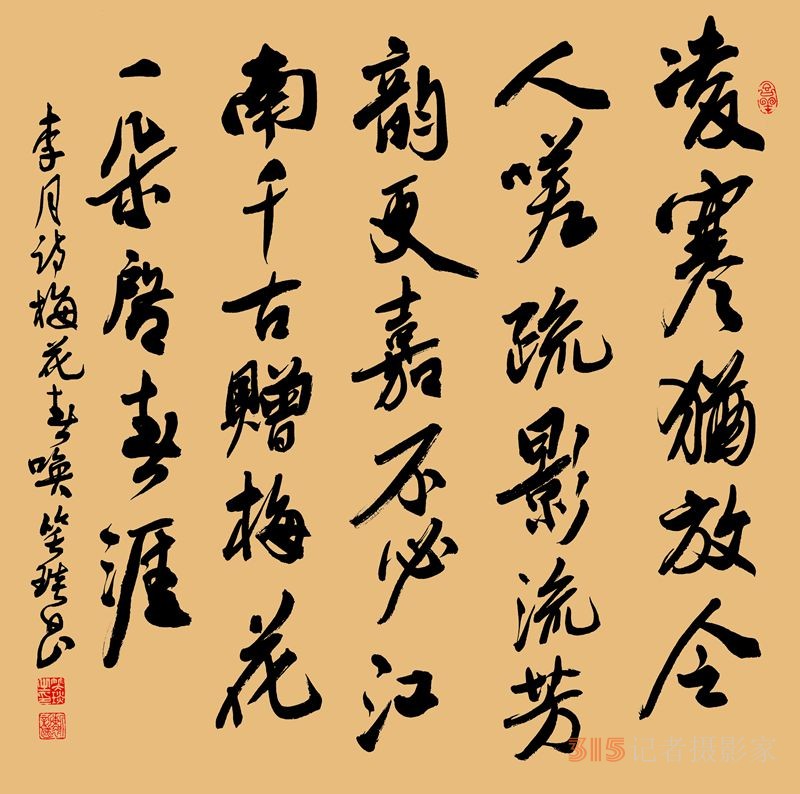 凌寒犹放令
人嗟疏影流芳
韵更嘉不必江
南千古赠梅花
一朵启春涯
李月诗梅花春唤
315记者摄影家